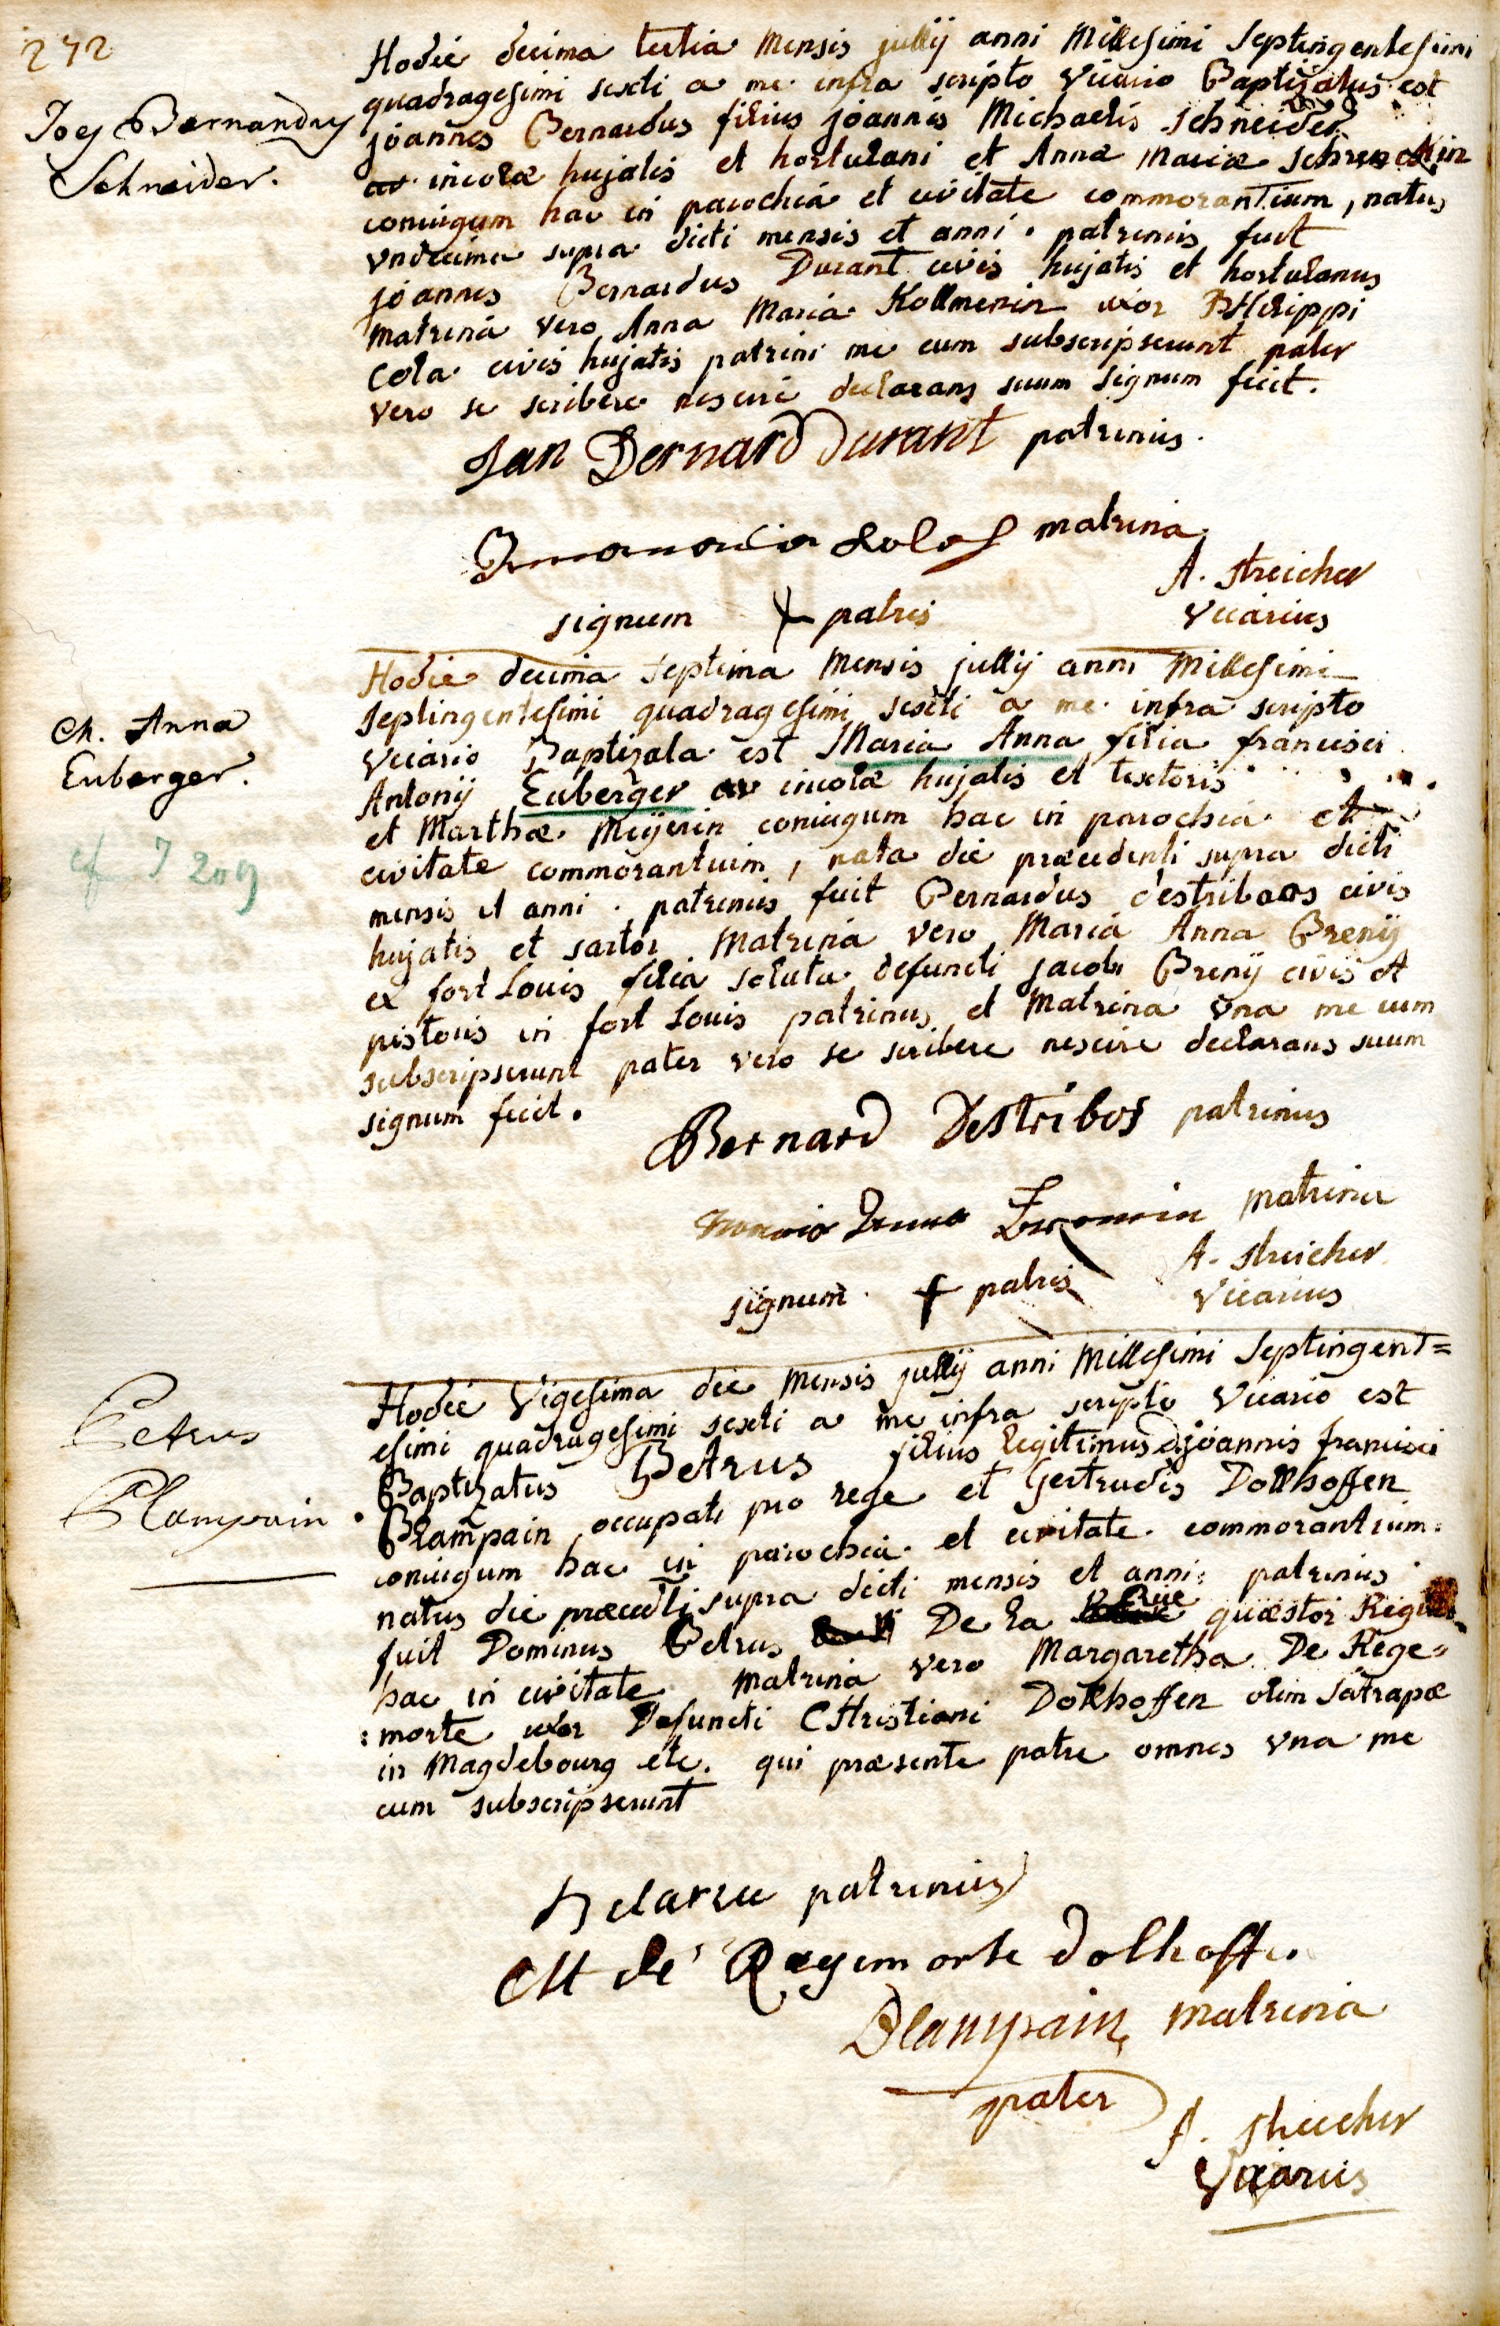 272
Joes Bernandus
Schneider.
Hodie decima tertia Mensis jullij anni Millesimi Septingentesimi
quadragesimi sexti a me infra scripto Vicario Baptizatus est
joannes Bernardus filius joannis Michaelis Schneider
incolæ hujatis et hortulani et Annæ Mariæ
coniugum hac in parochia et civitate commorantium, natus
vndecima supra dicti mensis et anni. patrinus fuit
joannes Bernardus Durant civis hujatis et hortulanus
Matrina vero Anna Maria Kollmerin uxor PHilippi
Cola civis hujatis patrini me cum subscripserunt pater
vero se scribere nescire declarans suum signum fecit.
Jan Bernard Durant patrinus.
matrina
A. Streicher
signum patris Vicarius
Ch. Anna
Euberger.
cf I 209
Hodie decima septima Mensis jullij anni Millesimi
Septingentesimi quadragesimi sexti a me infra scripto
Vicario Baptizata est Maria Anna filia francisci
Antonij Euberger incolæ hujatis et textoris
et Marthæ Meijerin coniugum hac in parochia et
civitate commorantium, nata die præcedenti supra dicti
mensis et anni. patrinus fuit Bernardus destribaos civis
hujatis et sartor Matrina vero Maria Anna Brenij
ex fort Louis filia soluta defuncti jacobi Brenij civis et
pistoris in fort Louis patrinus et Matrina vna me cum
subscripserunt pater vero se scribere nescire declarans suum
signum fecit.
Bernard Destribos patrinus
Maria Anna matrina
A. Streicher
signum patris Vicarius
Petrus
Blampain
Hodie Vigesima die Mensis jullij anni Millesimi Septingent=
esimi quadragesimi sexti a me infra scripto Vicario est
Baptizatus Petrus filius legitimus joannis francisci
Blampain occupati pro rege et Gertrudis Dollhoffen
coniugum hac in parochia et civitate commorantium:
natus die præcedti supra dicti mensis et anni: patrinus
fuit Dominus Petrus De La Rüe quæstor Regius
hac in civitate Matrina vero Margaretha De Rege=
:morte uxor Defuncti CHristiani Dollhoffen olim Satrapæ
in Magdebourg etc. qui præsente patre omnes vna me
cum subscripserunt
Delarue patrinus
M de Regemorte dolhoffen
Blampain matrina
pater
A. Streicher
Vicarius